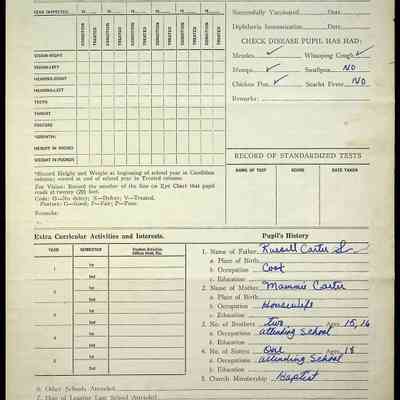 YEAR INSPECTED: 19 19 19 19 19 19
CONDITION TREATED CONDITION TREATED CONDITION TREATED CONDITION TREATED CONDITION TREATED CONDITION TREATED
VISION-RIGHT
VISION-LEFT
HEARING-RIGHT
HEARING-LEFT
TEETH
THROAT
POSTURE
HEIGHT IN INCHES
WEIGHT IN POUNDS
*Record Height and Weight at beginning of school year in Condition
column; record at end of school year in Treated column.
For Vision: Record the number of the line on Eye Chart that pupil
reads at twenty (20) feet.
Code: O—No defect; X—Defect; V—Treated.
Posture: G—Good; F—Fair; P—Poor.
Remarks:
Successfully Vaccinated Date
Diphtheria Immunization Date
CHECK DISEASE PUPIL HAS HAD:
Measles ✓ Whooping Cough ✓
Mumps ✓ Smallpox NO
Chicken Pox ✓ Scarlet Fever NO
Remarks:
RECORD OF STANDARDIZED TESTS
NAME OF TEST SCORE DATE TAKEN
Extra Curricular Activities and Interests.
YEAR SEMESTER
1 1st
2nd
2 1st
2nd
3 1st
2nd
4 1st
2nd
1st
2nd
6. Other Schools Attended
Pupil's History
1. Name of Father Russell Carter
a Place of Birth
b. Occupation Cook
c. Education
2. Name of Mother Mammie Carter
a. Place of Birth
b. Occupation Housewife
c. Education
3. No. of Brothers two Ages 15, 16
a. Occupations attending School
b. Education
4. No. of Sisters One Ages 18
a. Occupations attending School
b. Education
5. Church Membership Baptist